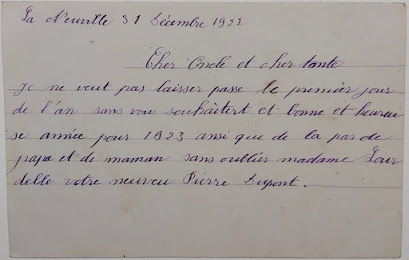 La Neuville 31 Décembre 1922
Cher Oncle et cher tante
Je ne veut pas laisser passe le premier jour
de l'an sans vous souhaitert et bonne et heureu
se année pour 1923 ansi que de la par de
papa et de maman sans oublier madame Lour
delle votre neuveu Pierre Dupont.